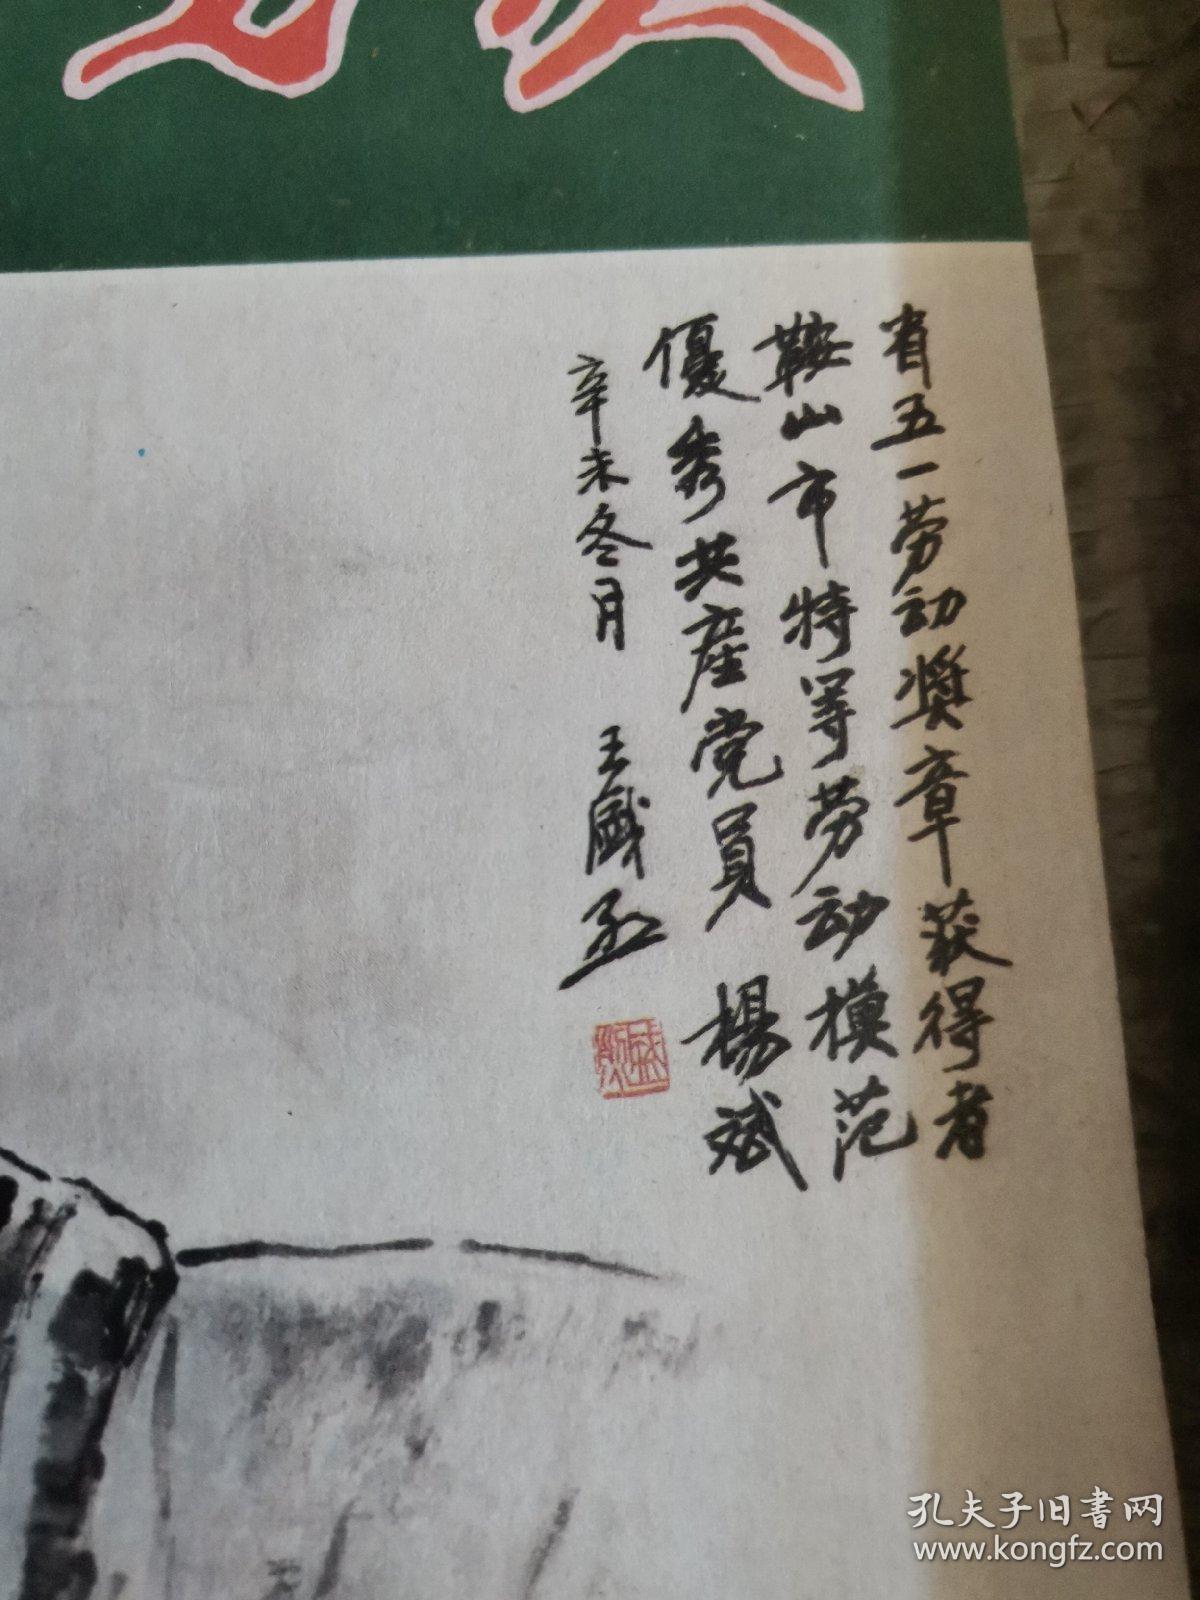 省五一劳动奖章获得者
鞍山市特等劳动模范
優秀共産党员 楊斌
辛未冬月 王盛
孔夫子旧書网
www.kongfz.com